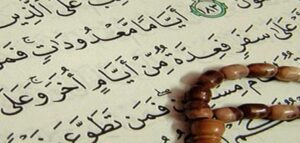 عَلَى الَّذِينَ
أَيَّامًا مَّعْدُودَٰتٍ ۚ فَمَن
عَلَىٰ سَفَرٍ فَعِدَّةٌ مِّنْ أَيَّامٍ أُخَرَ ۚ وَعَلَى
فَمَن تَطَوَّعَ